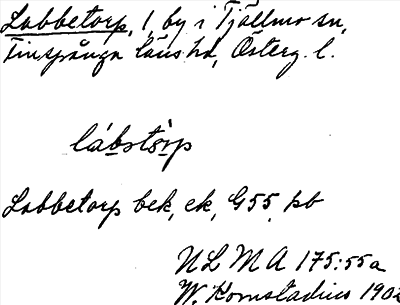 Labbetorp, 1 by i Tjällmo sn,
Finspånga läns hd, Österg. l.
lábstòrp
Labbetorp bek, ek, G55, kb
NLMA 175:55a
W. Komstadius 190